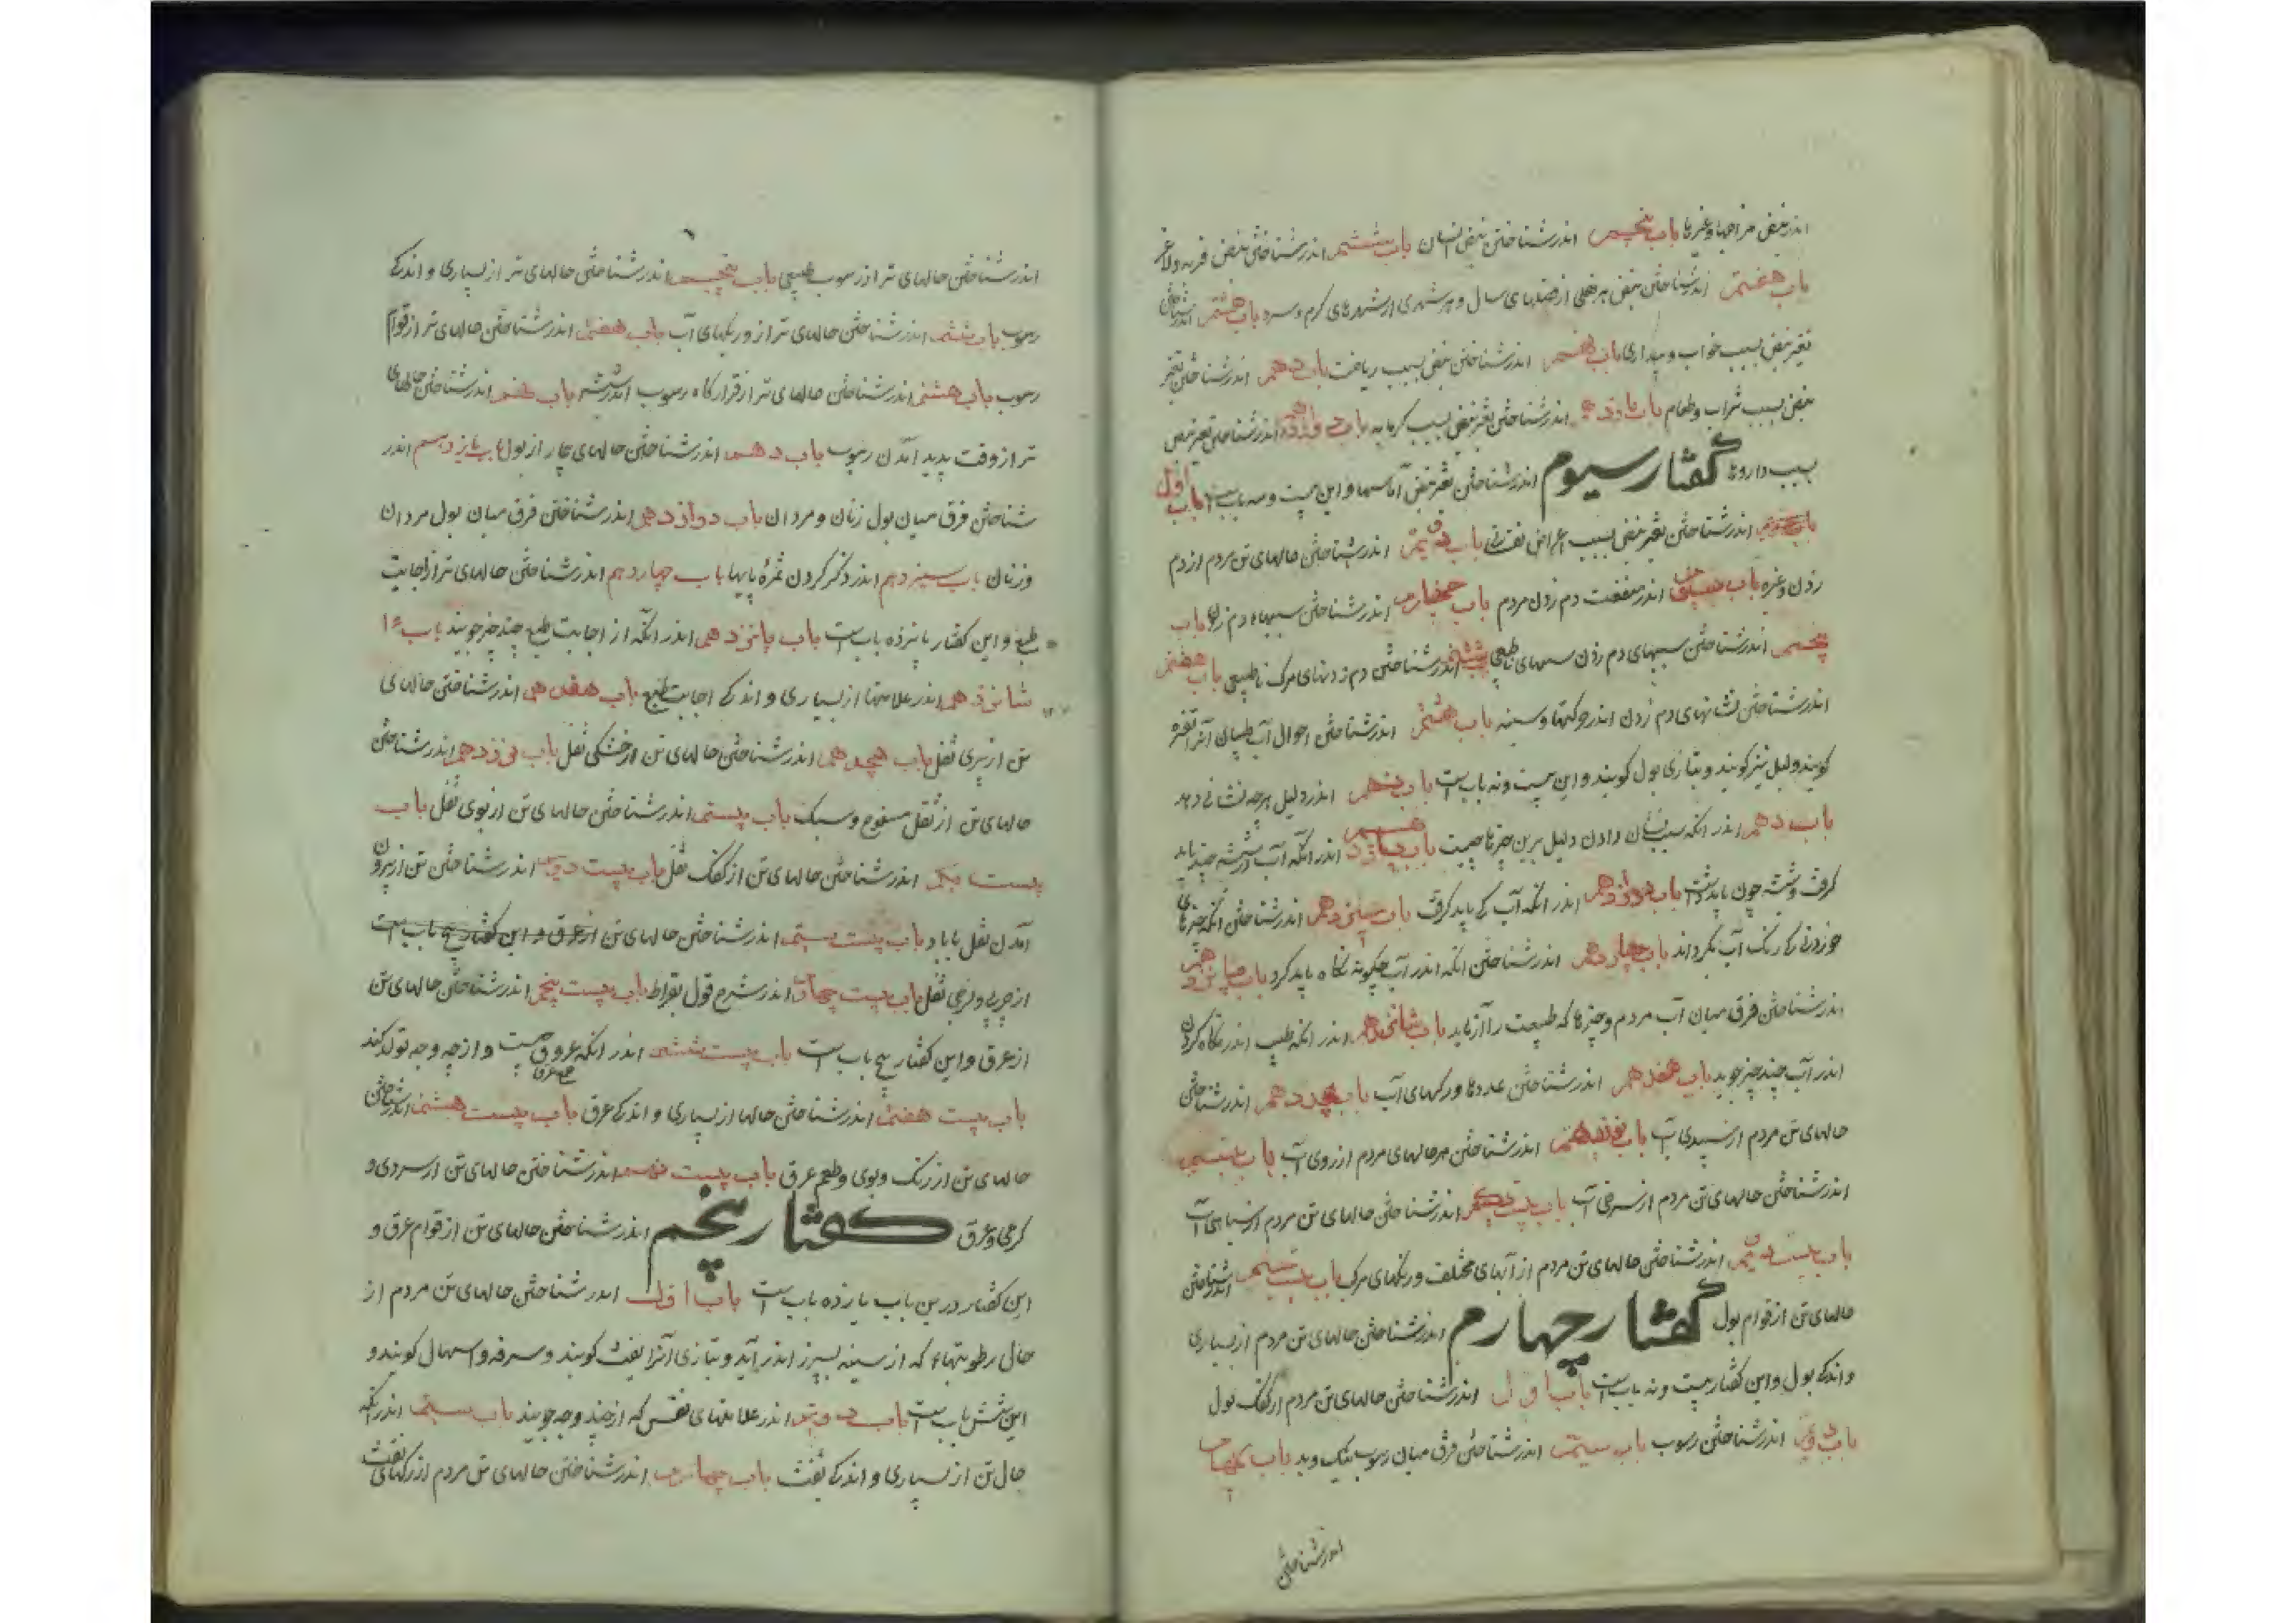 اندر نبض مزاجها و غیرها باب پنجم اندر شناختن نبض انسان باب ششم اندر شناختن نبض فربه و لاغر
باب هفتم اندر شناختن نبض هر فصلی از فصلهای سال و هر شهری از شهرهای گرم و سرد باب هشتم اندر شناختن
تغیر نبض بسبب خواب و بیداری باب نهم اندر شناختن نبض بسبب ریاضت باب دهم اندر شناختن تغیر
نبض بسبب شراب و طعام باب یازدهم اندر شناختن تغیر نبض بسبب گرمابه باب دوازدهم اندر شناختن تغیر نبض
بسبب داروها گفتار سیوم اندر شناختن تغیر نبض آماسها و این بیست و سه باب است باب اول
اندر شناختن تغیر نبض بسبب اعراض نفسانی باب دویم اندر شناختن حالهای تن مردم از دم
زدن و غیره باب سیم اندر منفعت دم زدن مردم باب چهارم اندر شناختن سببهاء دم زدن باب
پنجم اندر شناختن سببهای دم زدن سببهای ناطبیعی ششم اندر شناختن دم زدنهای مرکب ناطبیعی باب هفتم
اندر شناختن نشانهای دم زدن اندر حرکتها و سینه باب هشتم اندر شناختن احوال آب طبیبان آنرا تفسره
گویند و دلیل نیز گویند و بتازی بول گویند و این بیست و نه باب است باب نهم اندر دلیل هرچه نشانی دهد
باب دهم اندر انکه سبب نشان دادن دلیل برین چیزها چیست باب یازدهم اندر انکه آب در شیشه چند باید
گرفت و شیشه چون باید شست باب دوازدهم اندر انکه آب کی باید گرفت باب سیزدهم اندر شناختن انکه چیزهای
خوردنی که رنک آب بگرداند باب چهاردهم اندر شناختن انکه اندر آب چگونه نگاه باید کرد باب پانزدهم
اندر شناختن فرق میان آب مردم و چیزها که طبیعت را آزماید باب شانزدهم اندر انکه طبیب اندر نگاه کردن
اندر آب چند چیز جوید باب هفدهم اندر شناختن عددها و رنگهای آب باب هجدهم اندر شناختن
حالهای تن مردم از سپیدی آب باب نوزدهم اندر شناختن مر حالهای مردم از زردی آب باب بیستم
اندر شناختن حالهای تن مردم از سرخی آب باب بیست یکم اندر شناختن حالهای تن مردم از سیاهی آب
باب بیست دویم اندر شناختن حالهای تن مردم از آبهای مختلف و رنگهای مرکب باب بیست سیم اندر شناختن
حالهای تن از قوام بول گفتار چهارم اندر شناختن حالهای تن مردم از بسیاری
و اندکی بول و این گفتار بیست و نه باب است باب اول اندر شناختن حالهای تن مردم از کفک بول
باب دویم اندر شناختن رسوب باب سیم اندر شناختن فرق میان رسوب نیک و بد باب چهارم
اندر شناختن
اندر شناختن حالهای تن از رسوب طبیعی باب پنجم اندر شناختن حالهای تن از بسیاری و اندکی
رسوب باب ششم اندر شناختن حالهای تن از ورنگهای آب باب هفتم اندر شناختن حالهای تن از قوام
رسوب باب هشتم اندر شناختن حالهای تن از قرارگاه رسوب اندر شیشه باب نهم اندر شناختن حالهای
تن از وقت پدید آمدن رسوب باب دهم اندر شناختن حالهای بیمار از بول باب یازدهم اندر
شناختن فرق میان بول زنان و مردان باب دوازدهم اندر شناختن فرق میان بول مردان
و زنان باب سیزدهم اندر ذکر کردن ثمرهٔ بابها باب چهاردهم اندر شناختن حالهای تن از اجابت
طبع و این گفتار پانزده باب است باب پانزدهم اندر انکه از اجابت طبع چند چیز جویند باب
شانزدهم اندر علامتها از بسیاری و اندکی اجابت طبع باب هفدهم اندر شناختن حالهای
تن از تری ثفل باب هیجدهم اندر شناختن حالهای تن از خشکی ثفل باب نوزدهم اندر شناختن
حالهای تن از ثفل منفوخ و سبک باب بیستم اندر شناختن حالهای تن از بوی ثفل باب
بیست یکم اندر شناختن حالهای تن از کفک ثفل باب بیست دویم اندر شناختن تن از بیرون
آمدن ثفل با باد باب بیست سیم اندر شناختن حالهای تن از عرق و این گفتار پنج باب است
از چربی و لزجی ثفل باب بیست چهارم اندر شرح قول بقراط باب بیست پنجم اندر شناختن حالهای تن
از عرق و این گفتار پنج باب است باب بیست ششم اندر انکه عروق چیست و از چه وجه تولد کند
باب بیست هفتم اندر شناختن حالها از بسیاری و اندکی عرق باب بیست هشتم اندر شناختن
حالهای تن از رنک و بوی و طعم عرق باب بیست نهم اندر شناختن حالهای تن از سردی و
گرمی و عرق گفتار پنجم اندر شناختن حالهای تن از قوام عرق و
این گفتار درین باب یازده باب است باب اول اندر شناختن حالهای تن مردم از
حال رطوبتهاء که از سینه بسرفه اندر آید و بتازی آنرا نفث گویند و سرفه و اسهال گویند و
این شش باب است باب دویم اندر علامتهای نفس که از چند وجه جویند باب سیم اندر انکه
حال تن از بسیاری و اندکی نفث باب چهارم اندر شناختن حالهای تن مردم از رنگهای نفث